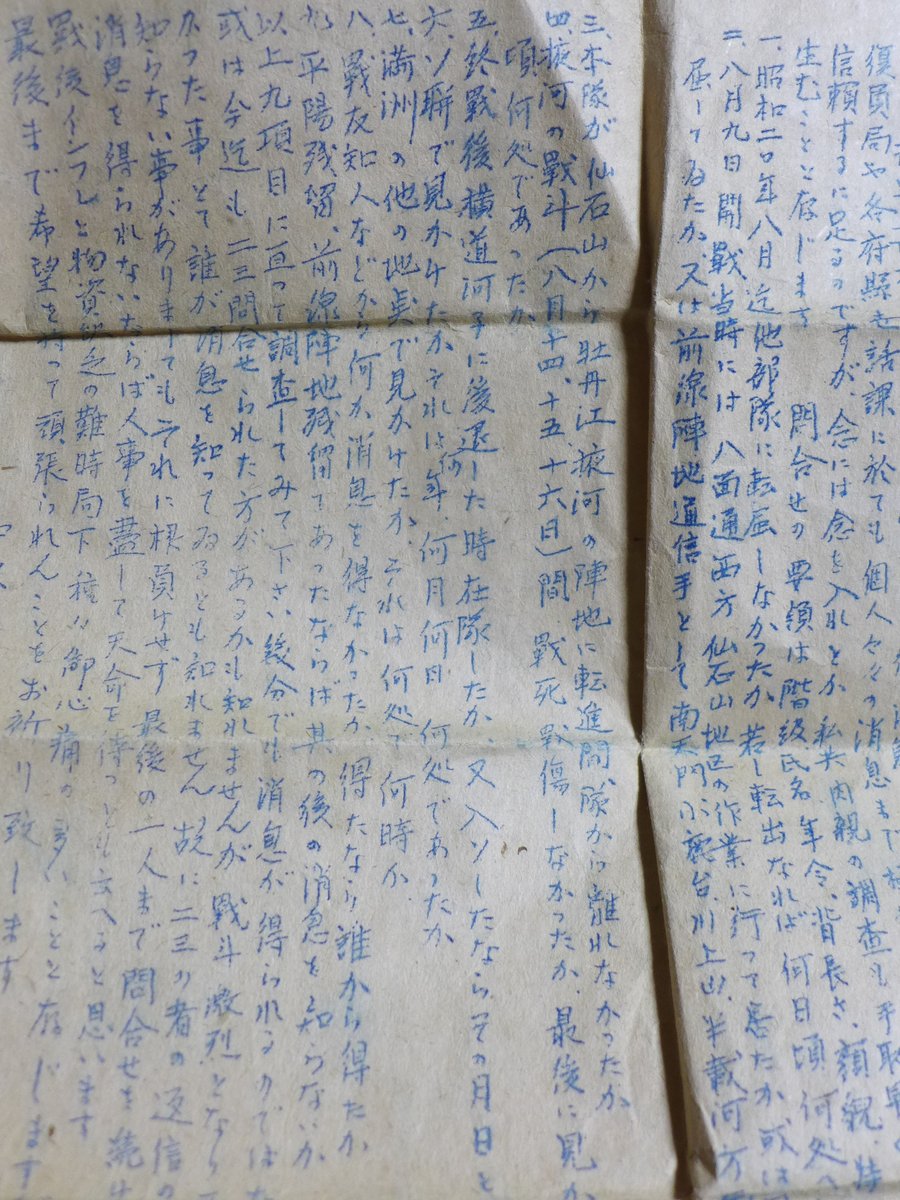 復員局や各府縣世話課に於ても個人々々の消息まで
信頼するに足るのですが、念には念を入れとか 私共内親の調査も
生むことと存じます 問合せの要領は階級氏名、年令、背長さ、顔貌、特
一、昭和二〇年八月迄他部隊に転属しなかったか 若し転出なれば 何日頃何処へ
二、八月九日開戰当時には 八面通西方 仙石山地区の作業に行って居たか 或は
屈してゐたか、又は前線陣地通信手として 南天門、小鹿台、川上山、半截河方
三、本隊が仙石山から牡丹江掖河の陣地に転進間、隊から離れなかったか
四、掖河の戰斗(八月十四、十五、十六日)間、戰死戰傷しなかったか、最後に見か
頃、何処であったか
五、終戰後横道河子に後退した時在隊したか、又入ソしたなら その月日と
六、ソ聯で見かけたか それは何年、何月何日、何処であったか
七、満洲の他の地点で見かけたか、それは何処で何時か
八、戰友知人などから何か消息を得なかったか、得たなら、誰から得たか
九、平陽残留、前線陣地残留であったならば 其の後の消息を知らないか
以上九項目に亘って調査してみて下さい 幾分でも消息が得られるのではな
或は今迄も二三問合せられた方があるかも知れませんが 戰斗激烈となり
かった事とて誰が消息を知ってゐるとも知れません 故に二三の者の返信の
知らない事がありましてもそれに根負けせず 最後の一人まで問合せを続け
消息を得られないならば人事を盡して天命を待つとも云へると思います
戰後インフレと物資缺乏の難時局下 種々御心痛の多いことと存じます
最後まで希望を持って頑張られんことをお祈り致します